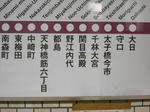 大日
守口
太子橋今市
千林大宮
関目高殿
野江内代
都島
天神橋筋六丁目
中崎町
東梅田
南森町